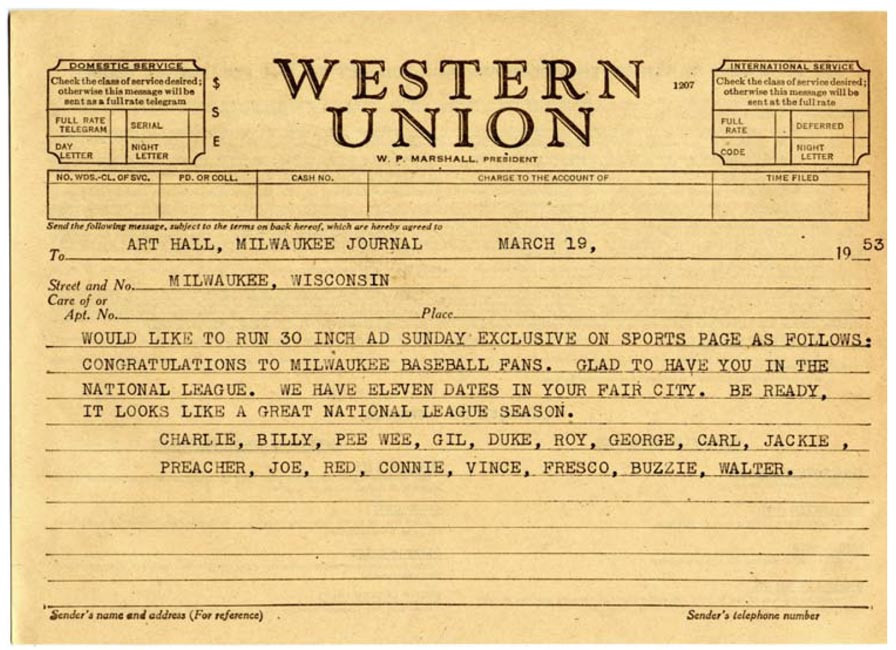 DOMESTIC SERVICE
Check the class of service desired;
otherwise this message will be
sent as a full rate telegram
FULL RATE TELEGRAM SERIAL
DAY LETTER NIGHT LETTER
$
S
E
WESTERN
UNION
1207
W. P. MARSHALL, PRESIDENT
INTERNATIONAL SERVICE
Check the class of service desired;
otherwise this message will be
sent at the full rate
FULL RATE DEFERRED
CODE NIGHT LETTER
NO. WDS.-CL. OF SVC. PD. OR COLL. CASH NO. CHARGE TO THE ACCOUNT OF TIME FILED
Send the following message, subject to the terms on back hereof, which are hereby agreed to
To ART HALL, MILWAUKEE JOURNAL MARCH 19, 19 53
Street and No. MILWAUKEE, WISCONSIN
Care of or
Apt. No. Place
WOULD LIKE TO RUN 30 INCH AD SUNDAY EXCLUSIVE ON SPORTS PAGE AS FOLLOWS:
CONGRATULATIONS TO MILWAUKEE BASEBALL FANS. GLAD TO HAVE YOU IN THE
NATIONAL LEAGUE. WE HAVE ELEVEN DATES IN YOUR FAIR CITY. BE READY,
IT LOOKS LIKE A GREAT NATIONAL LEAGUE SEASON.
CHARLIE, BILLY, PEE WEE, GIL, DUKE, ROY, GEORGE, CARL, JACKIE ,
PREACHER, JOE, RED, CONNIE, VINCE, FRESCO, BUZZIE, WALTER.
Sender's name and address (For reference) Sender's telephone number